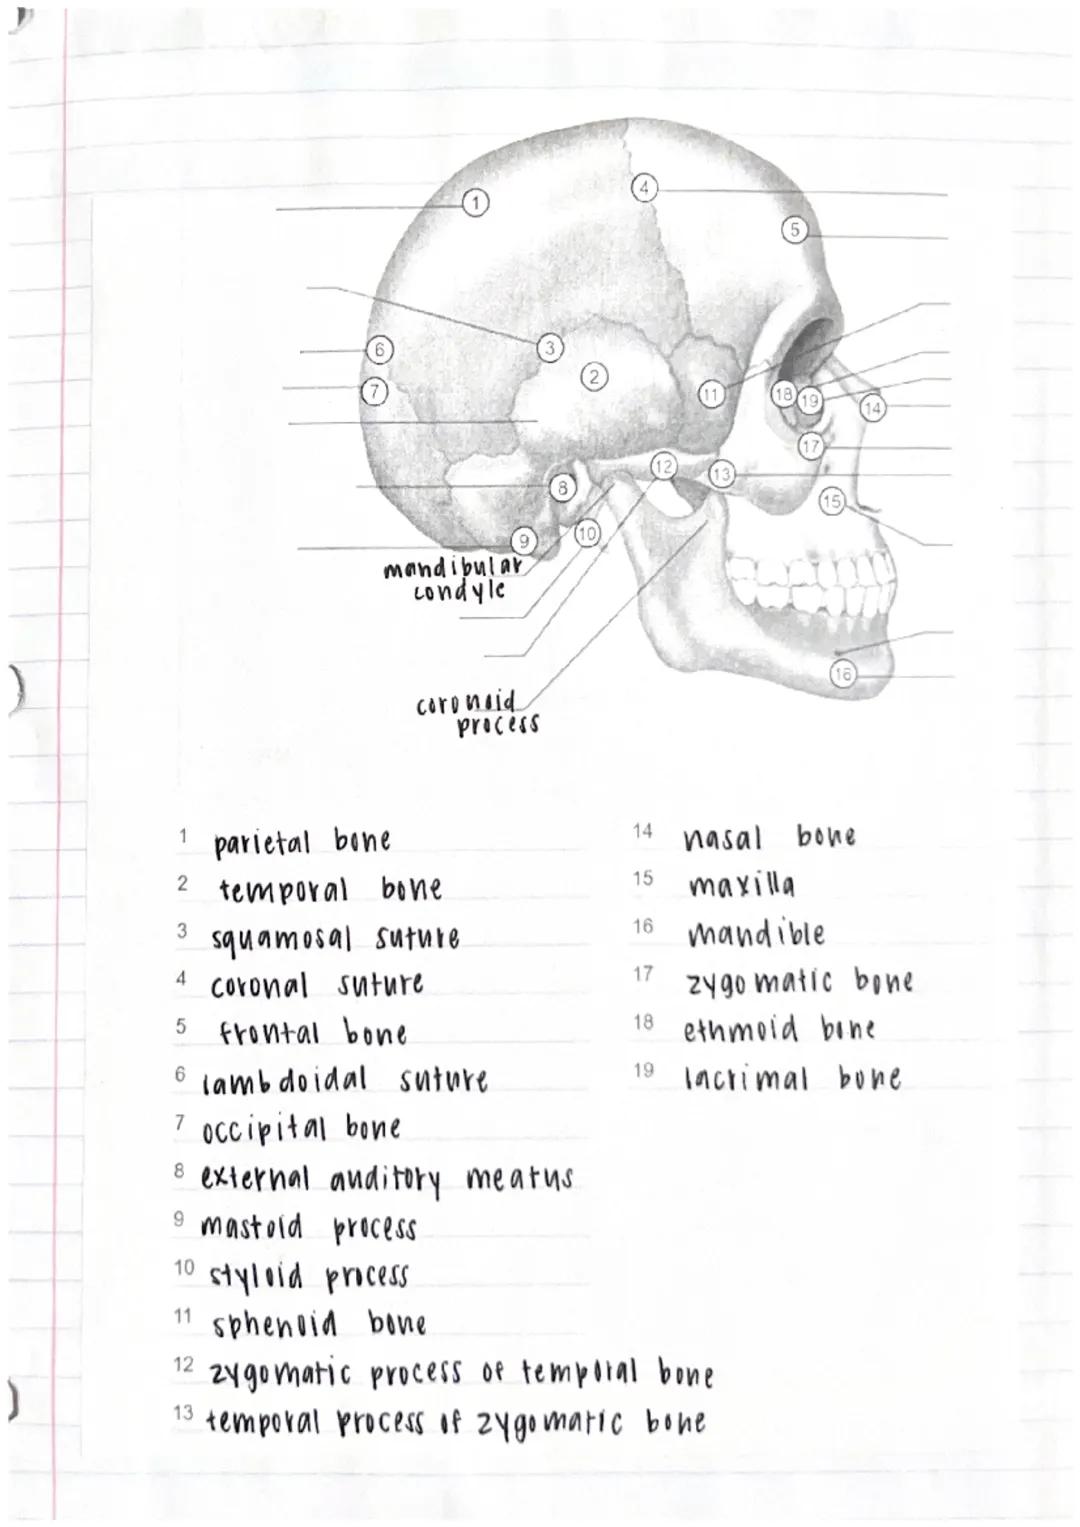 1
4
5
6
3
7
2
11
18
19
14
17
12
13
8
15
9
10
mandibular
condyle
16
coronoid
process
1 parietal bone
2 temporal bone
3 squamosal suture
4 coronal suture
5 frontal bone
6 lambdoidal suture
7 occipital bone
8 external auditory meatus
9 mastoid process
10 styloid process
11 sphenoid bone
12 zygomatic process of temporal bone
13 temporal process of zygomatic bone
14 nasal bone
15 maxilla
16 mandible
17 zygomatic bone
18 ethmoid bone
19 lacrimal bone